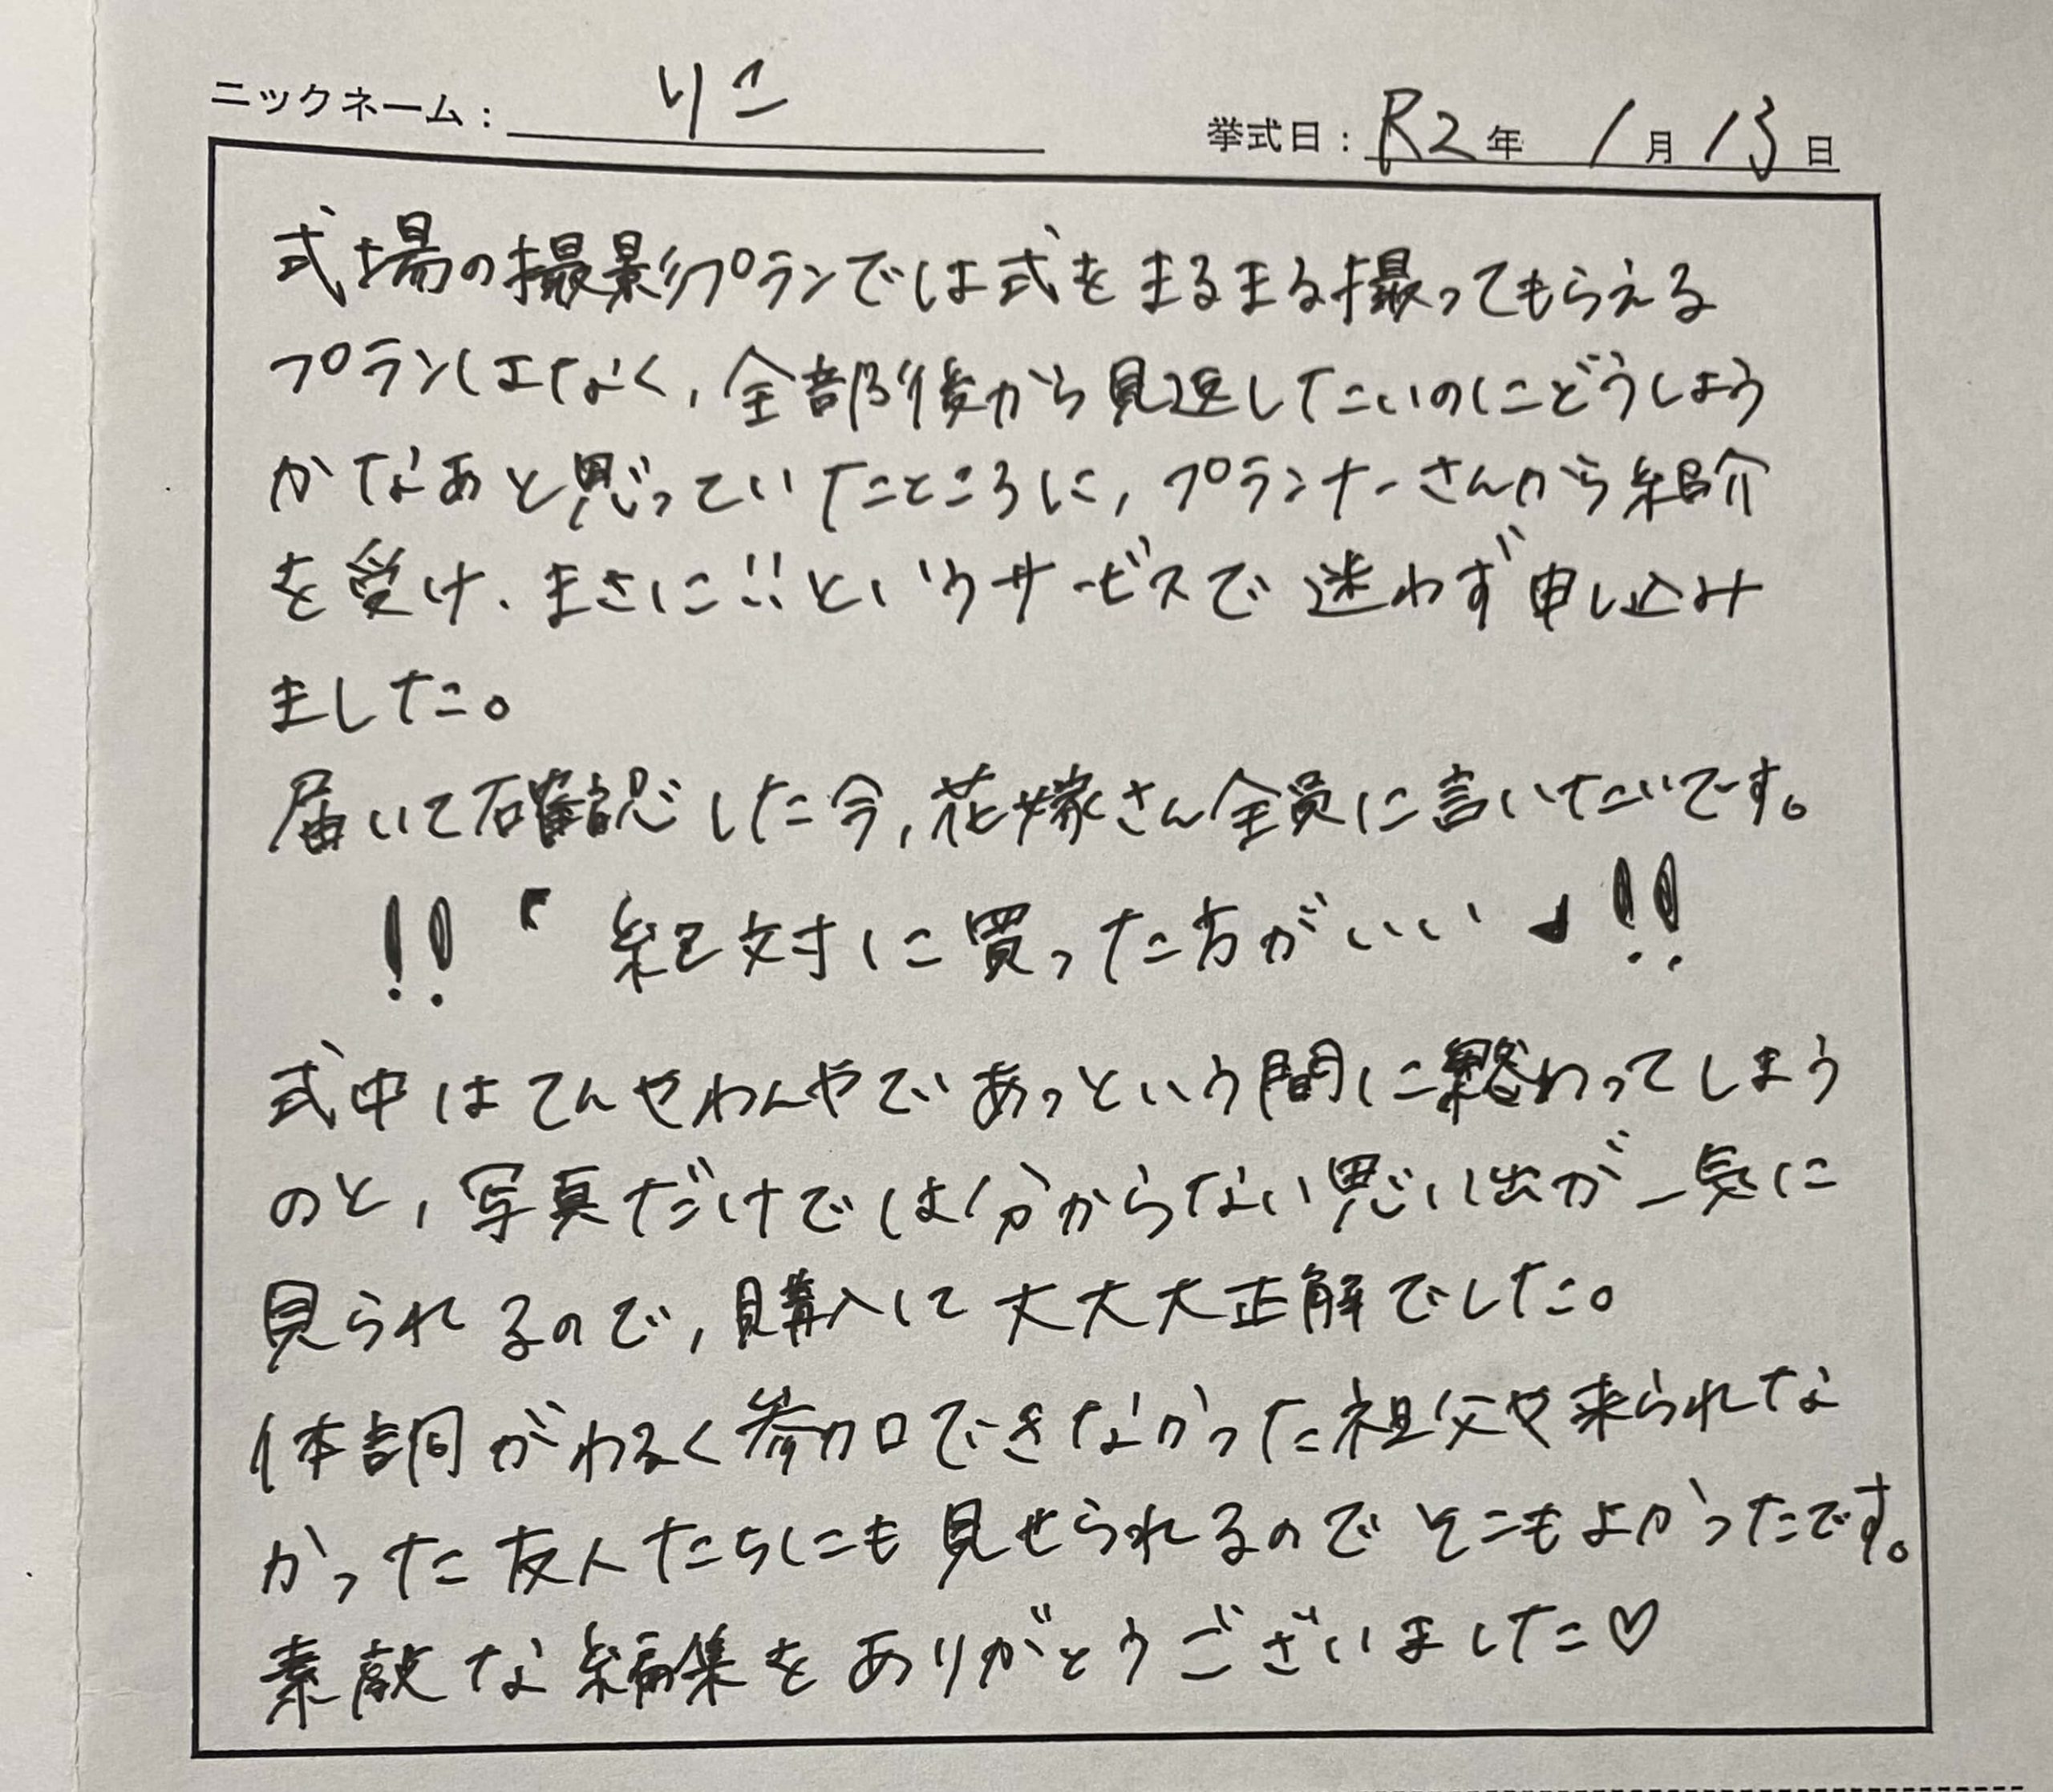 ニックネーム： りこ 挙式日：R2年 1月13日
式場の撮影プランでは式をまるまる撮ってもらえる
プランはなく，全部後から見返したいのにどうしよう
かなあと思っていたところに，プランナーさんから紹介
を受け、まさに!!というサービスで迷わず申し込み
ました。
届いて確認した今，花嫁さん全員に言いたいです。
!!「絶対に買った方がいい」!!
式中はてんやわんやであっという間に終わってしまう
のと，写真だけでは分からない思い出が一気に
見られるので，購入して大大大正解でした。
体調がわるく参加できなかった祖父や来られな
かった友人たちにも見せられるのでそこもよかったです。
素敵な編集をありがとうございました♡